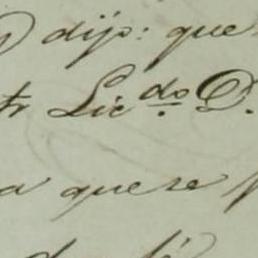 dijo: que
Lic.do D.
a que se